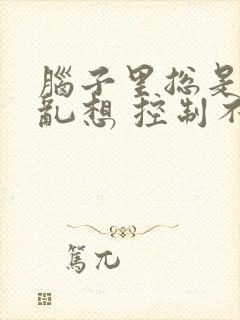 腦子里總是
亂想 控制不
篤兀